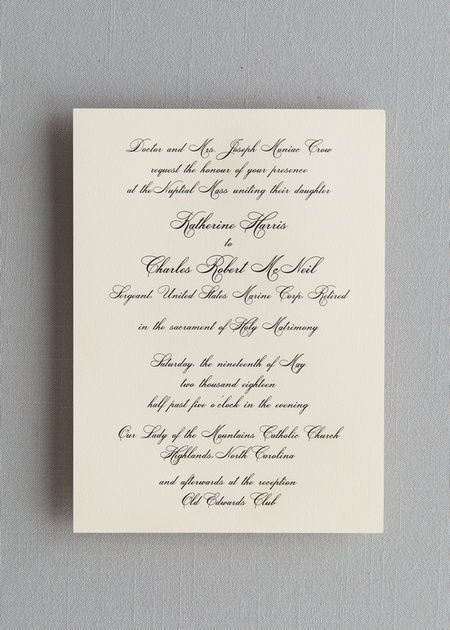 Doctor and Mrs. Joseph Maniac Crow
request the honour of your presence
at the Nuptial Mass uniting their daughter
Katherine Harris
to
Charles Robert McNeil
Sergeant, United States Marine Corp, Retired
in the sacrament of Holy Matrimony
Saturday, the nineteenth of May
two thousand eighteen
half past five o'clock in the evening
Our Lady of the Mountains Catholic Church
Highlands, North Carolina
and afterwards at the reception
Old Edwards Club